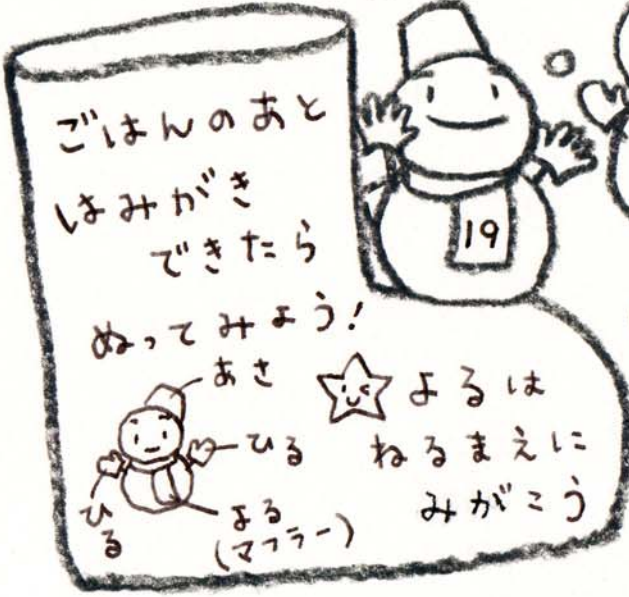 ごはんのあと
はみがき
できたら
ぬってみよう!
あさ
ひる
ひる
よる
(マフラー)
よるは
ねるまえに
みがこう
19